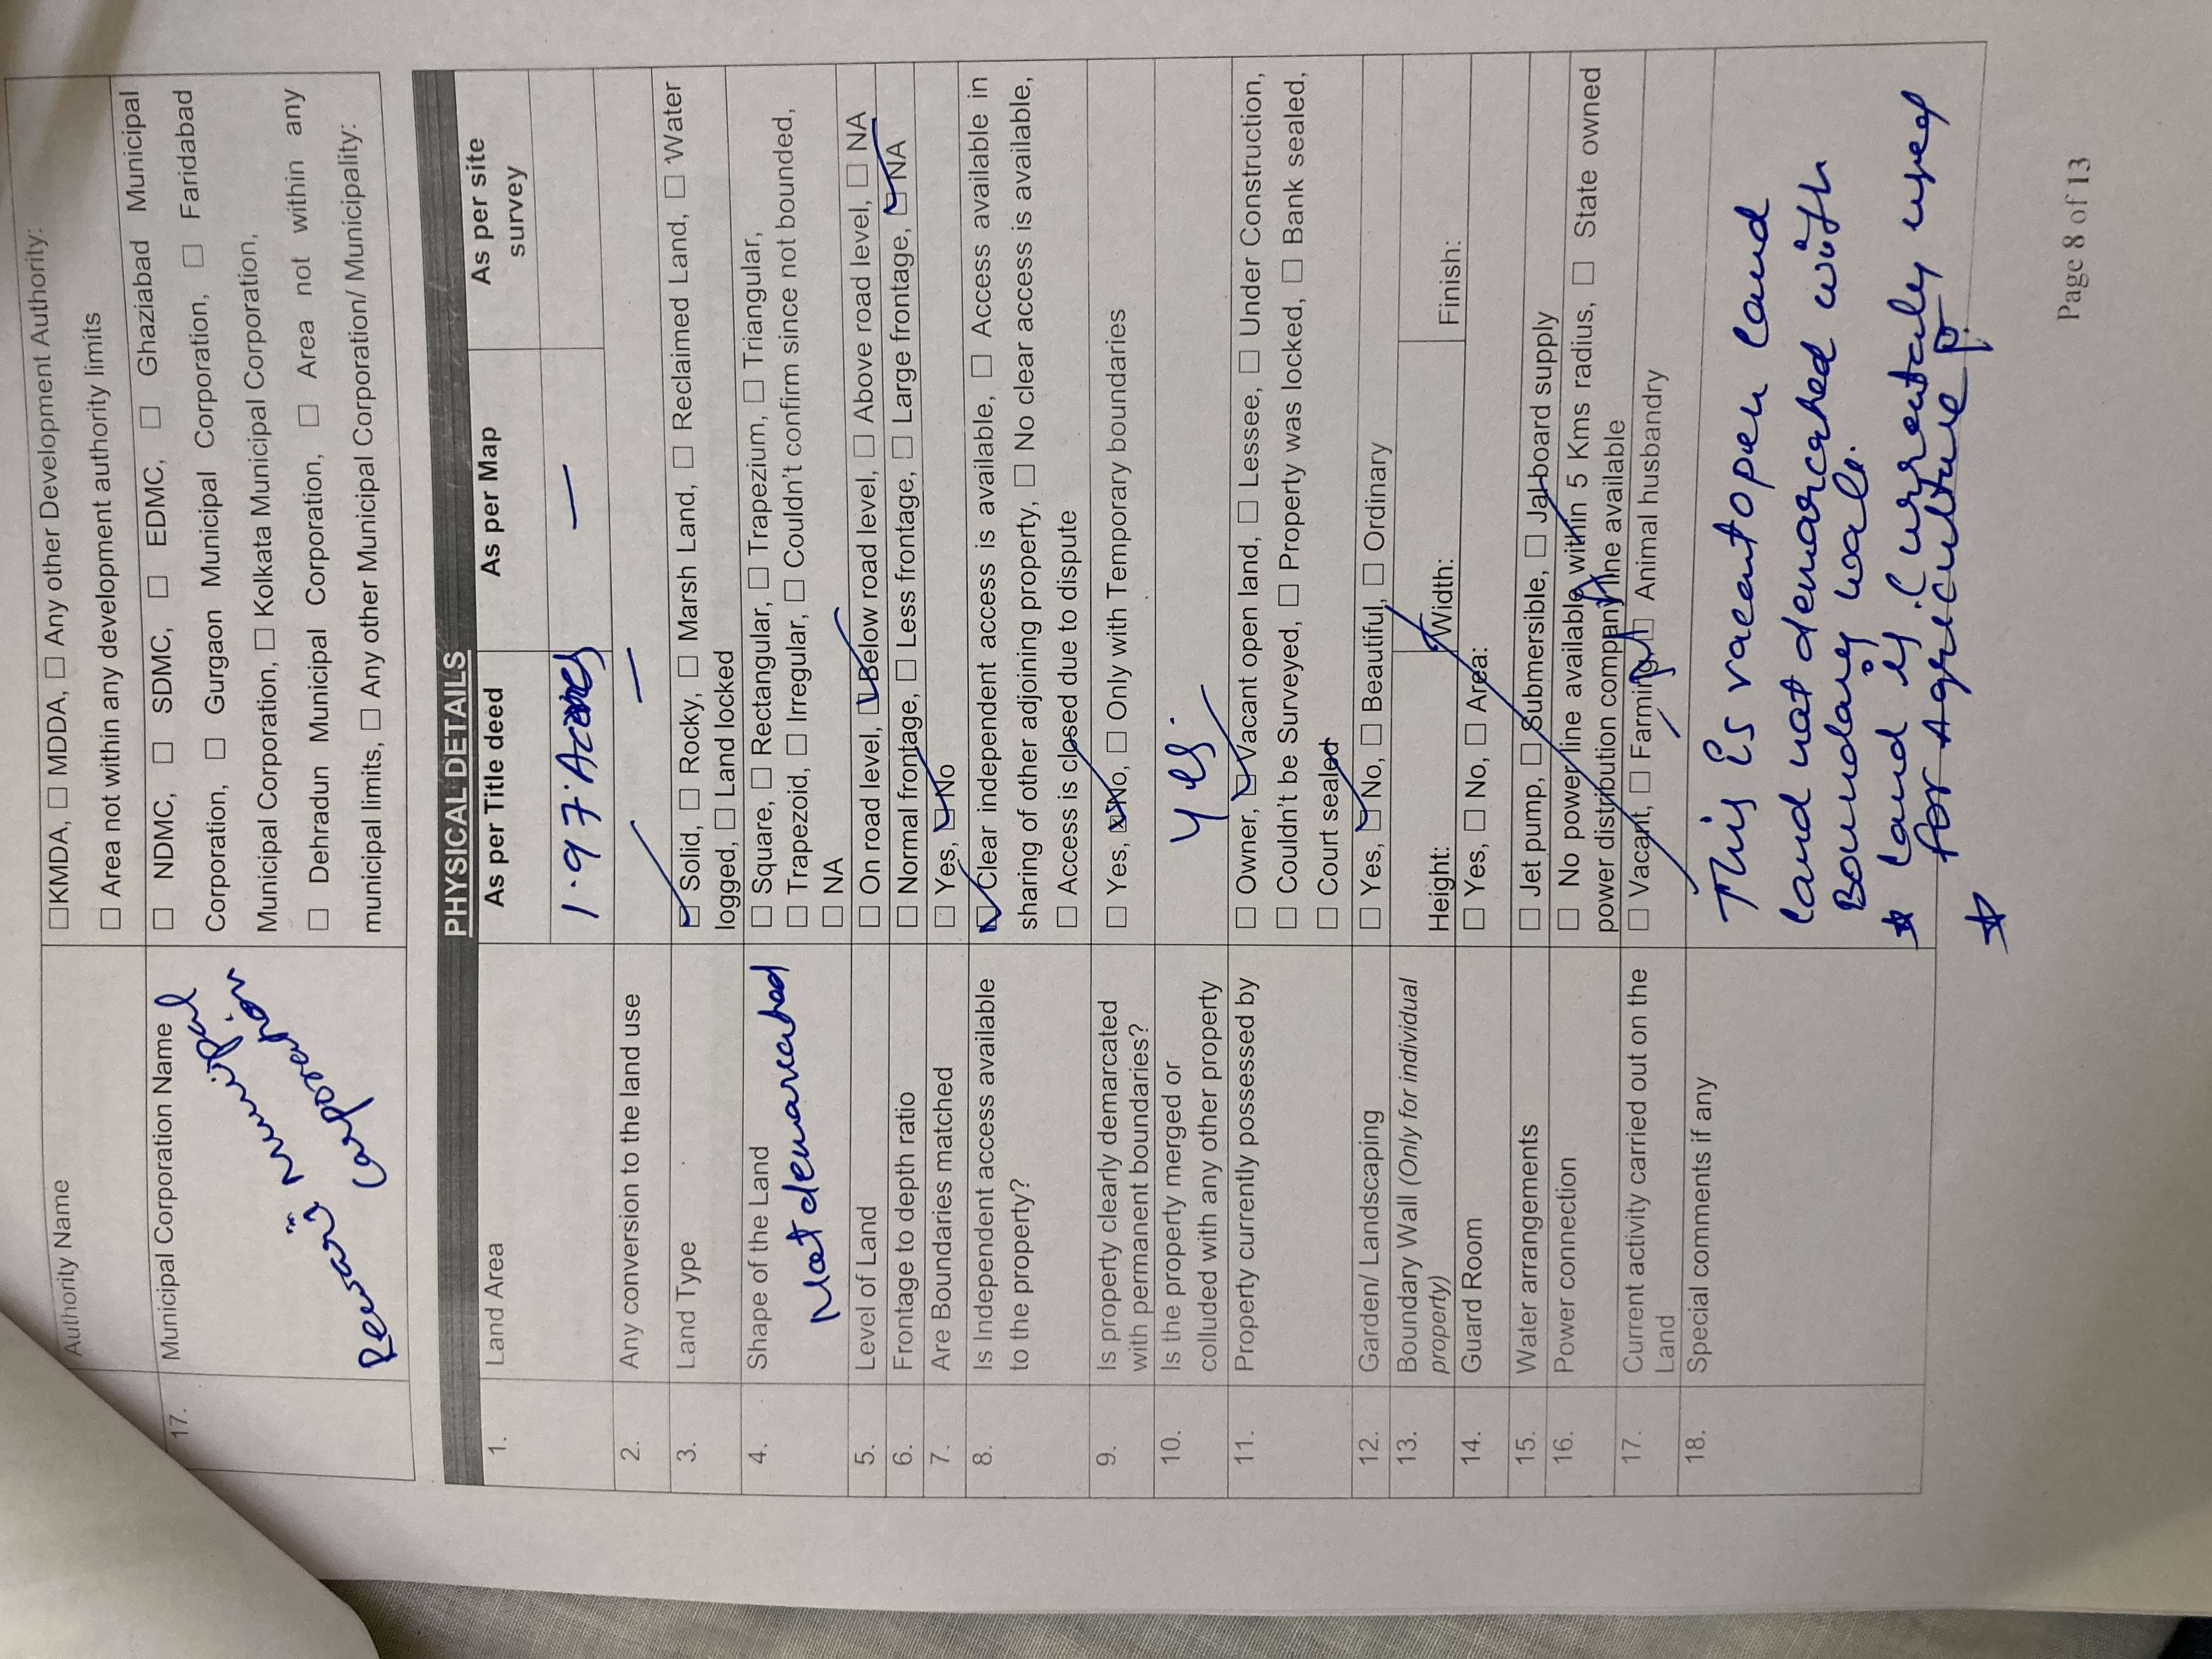 Authority Name
☐KMDA, ☐ MDDA, ☐ Any other Development Authority:
☐ Area not within any development authority limits
17. Municipal Corporation Name
Rewari Municipal
Corporation
☐ NDMC, ☐ SDMC, ☐ EDMC, ☐ Ghaziabad Municipal
Corporation, ☐ Gurgaon Municipal Corporation, ☐ Faridabad
Municipal Corporation, ☐ Kolkata Municipal Corporation,
☐ Dehradun Municipal Corporation, ☐ Area not within any
municipal limits, ☐ Any other Municipal Corporation/ Municipality:
PHYSICAL DETAILS
1. Land Area
As per Title deed As per Map As per site
survey
1.97 Acres —
2. Any conversion to the land use —
3. Land Type
☑ Solid, ☐ Rocky, ☐ Marsh Land, ☐ Reclaimed Land, ☐ Water
logged, ☐ Land locked
4. Shape of the Land
Not demarcated
☐ Square, ☐ Rectangular, ☐ Trapezium, ☐ Triangular,
☐ Trapezoid, ☐ Irregular, ☐ Couldn't confirm since not bounded,
☐ NA
5. Level of Land ☐ On road level, ☑ Below road level, ☐ Above road level, ☐ NA
6. Frontage to depth ratio ☐ Normal frontage, ☐ Less frontage, ☐ Large frontage, ☑ NA
7. Are Boundaries matched ☐ Yes, ☑ No
8. Is Independent access available
to the property?
☑ Clear independent access is available, ☐ Access available in
sharing of other adjoining property, ☐ No clear access is available,
☐ Access is closed due to dispute
9. Is property clearly demarcated
with permanent boundaries?
☐ Yes, ☒ No, ☐ Only with Temporary boundaries
10. Is the property merged or
colluded with any other property
Yes.
11. Property currently possessed by
☐ Owner, ☑ Vacant open land, ☐ Lessee, ☐ Under Construction,
☐ Couldn't be Surveyed, ☐ Property was locked, ☐ Bank sealed,
☐ Court sealed
12. Garden/ Landscaping ☐ Yes, ☑ No, ☐ Beautiful, ☐ Ordinary
13. Boundary Wall (Only for individual
property)
Height: Width: Finish:
14. Guard Room ☐ Yes, ☐ No, ☐ Area:
15. Water arrangements ☐ Jet pump, ☐ Submersible, ☐ Jal board supply
16. Power connection
☐ No power line available within 5 Kms radius, ☐ State owned
power distribution company line available
17. Current activity carried out on the
Land
☐ Vacant, ☐ Farming, ☐ Animal husbandry
18. Special comments if any
This is vacant open land
land not demarcated with
Boundary wall.
* land is currently used
* for Agriculture
Page 8 of 13